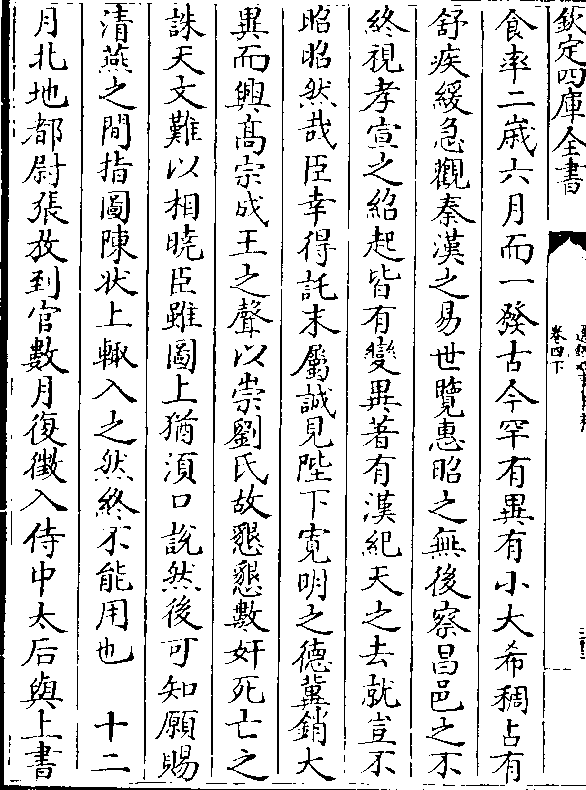 欽定四庫全書
卷四下
食率二歳六月而一發古今罕有異有小大希稠占有
舒疾緩急觀秦漢之易世覽惠昭之無後察昌邑之不
終視孝宣之紹起皆有變異著有漢紀天之去就豈不
昭昭然哉臣幸得託末屬誠見陛下寛明之德冀銷大
異而興髙宗成王之聲以崇劉氏故懇懇數奸死亡之
誅天文難以相曉臣雖圖上猶須口說然後可知願賜
清燕之間指圖陳状上輙入之然終不能用也　十二
月北地都尉張放到官數月復徵入侍中太后與上書